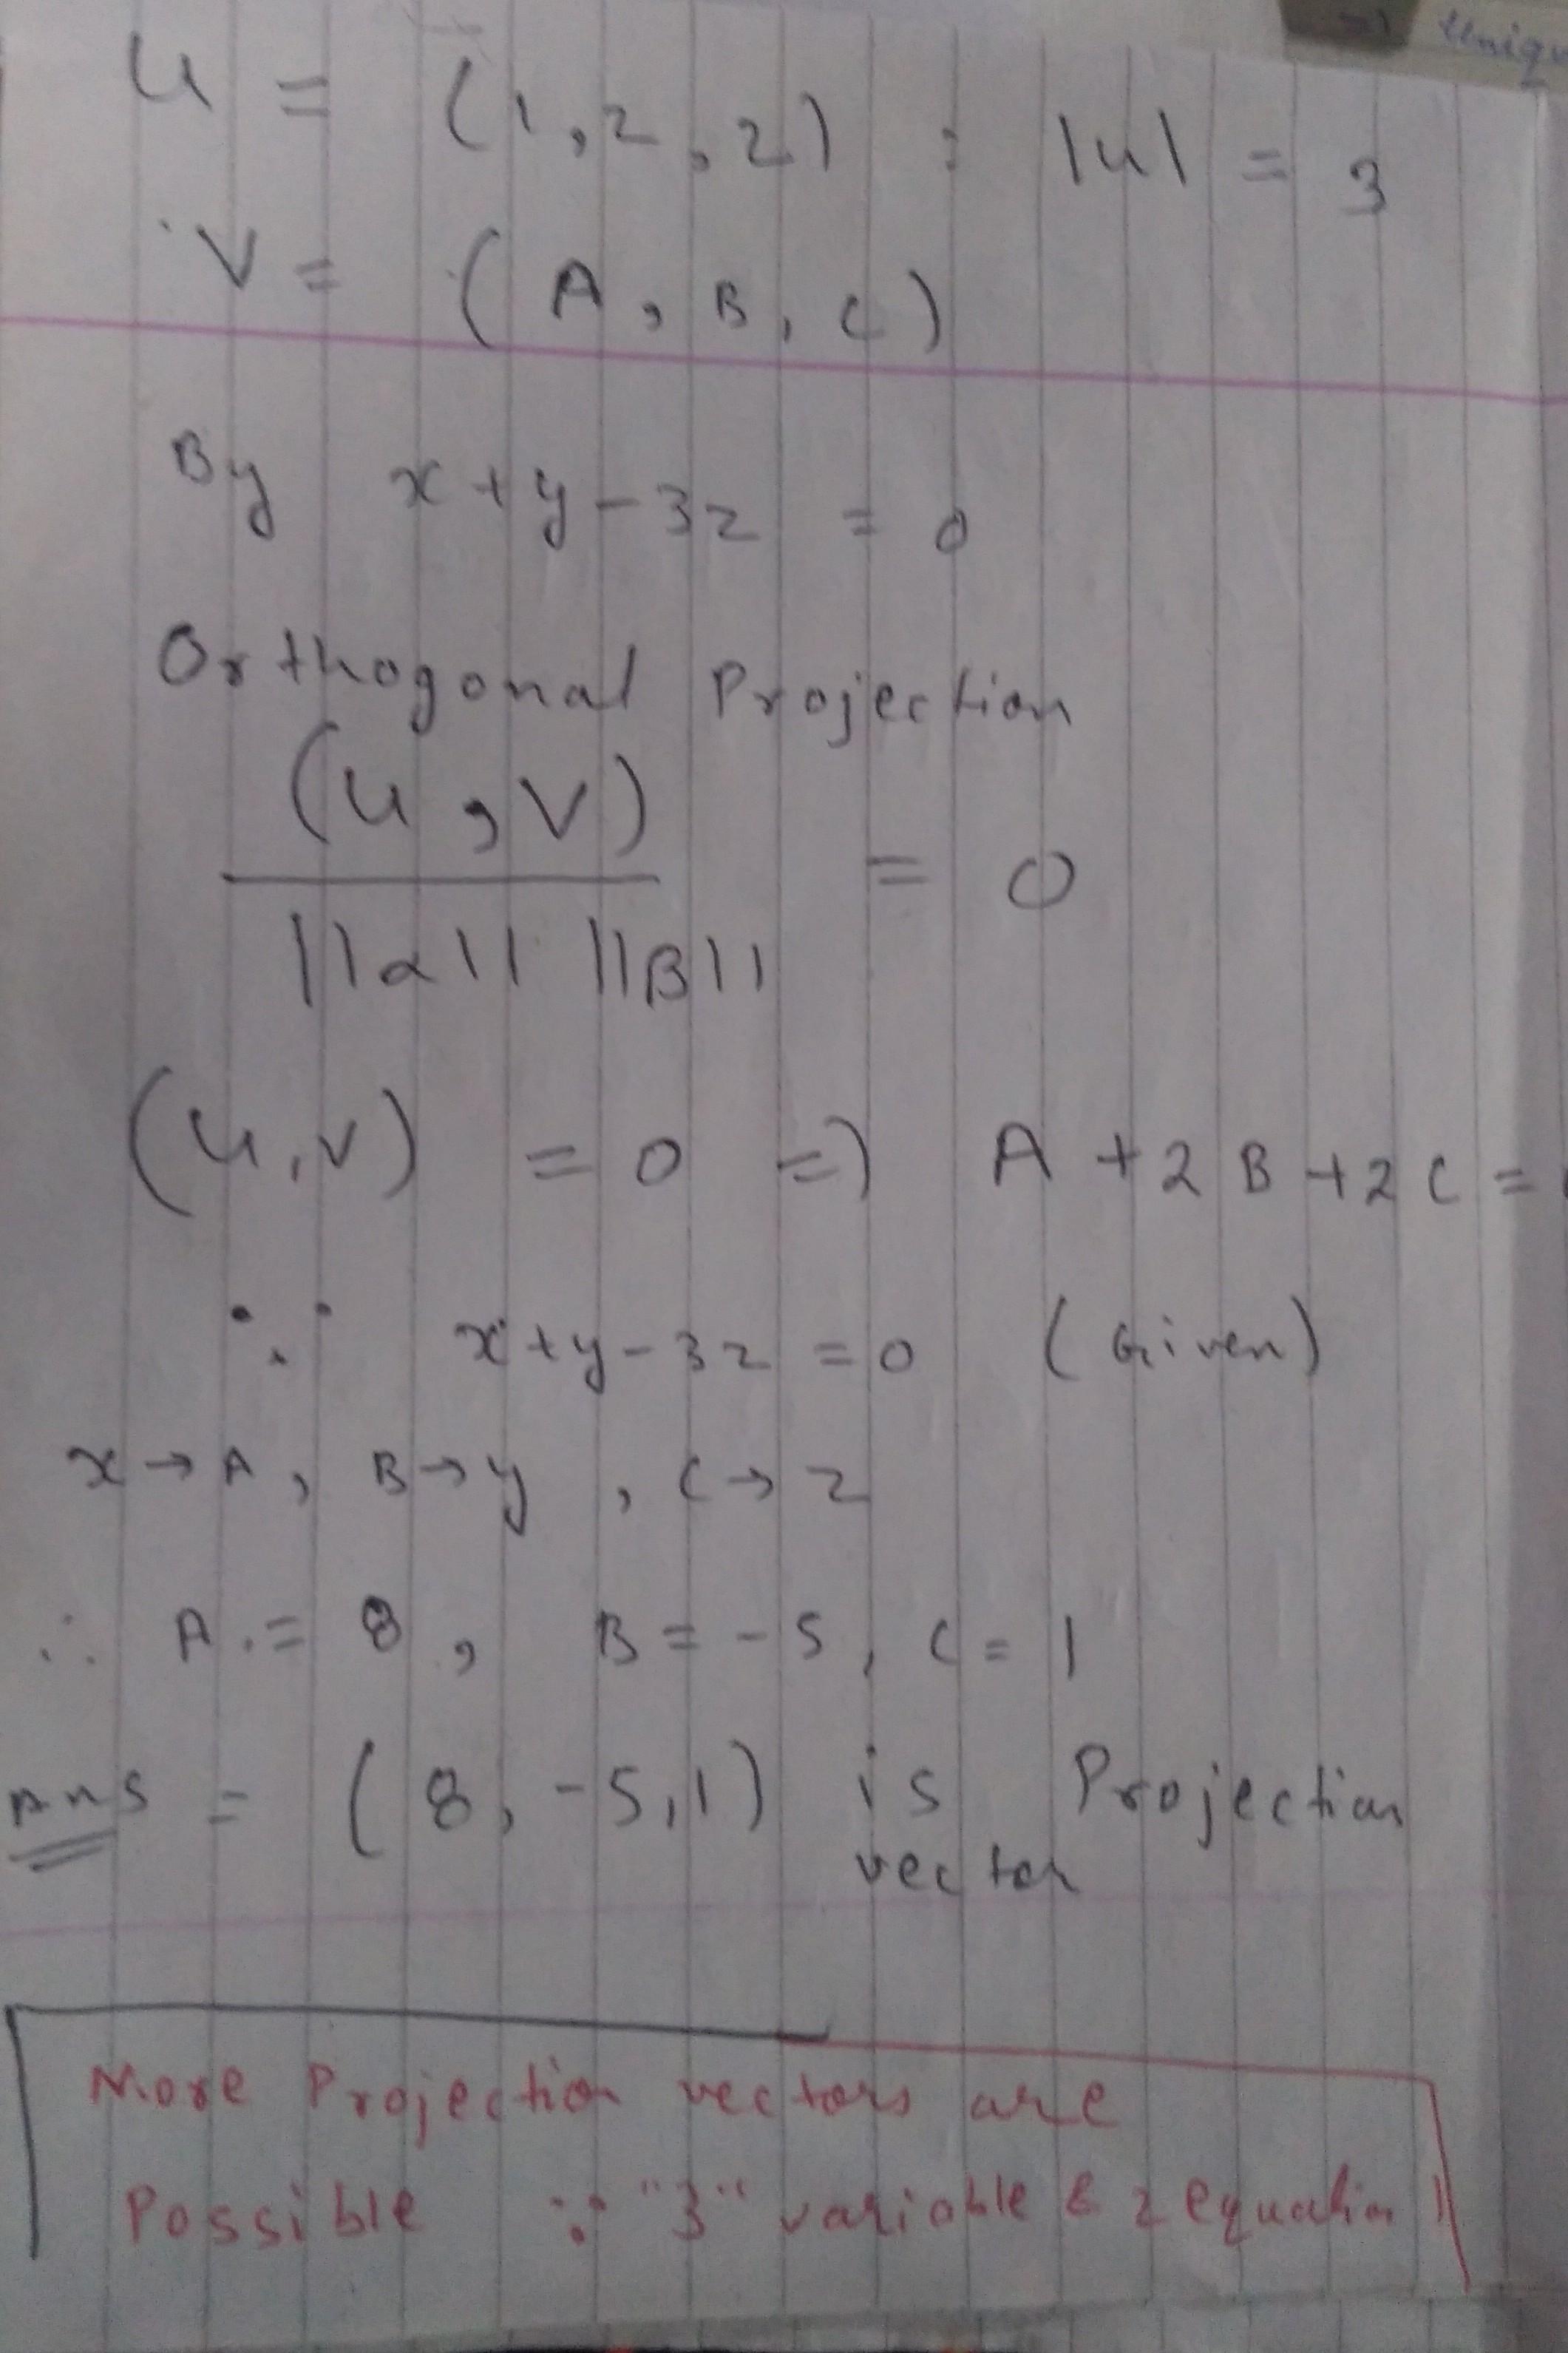 Uniqu
u = (1,2,2) : |u| = 3
V = (A, B, C)
By x+y-3z = 0
Orthogonal Projection
(u,V)
= 0
||α|| ||B||
(u,v) = 0 => A+2B+2C =
∵ x+y-3z = 0 (Given)
x→A, B→y, C→z
∴ A = 8, B = -5, C = 1
Ans = (8, -5, 1) is Projection
vector
More Projection vectors are
Possible ∵ "3" variable & 2 equation